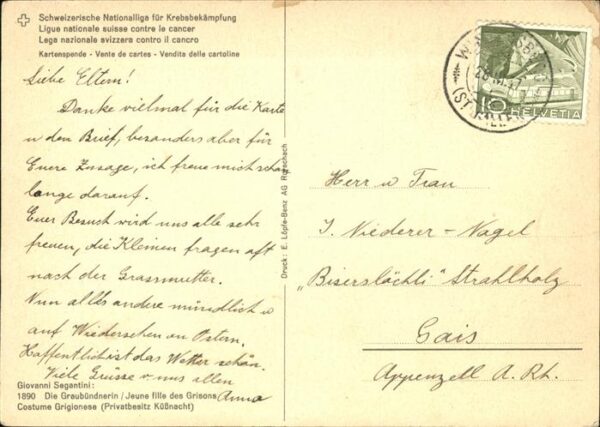 Schweizerische Nationalliga für Krebsbekämpfung
Ligue nationale suisse contre le cancer
Lega nazionale svizzera contro il cancro
Kartenspende - Vente de cartes - Vendita delle cartoline
Liebe Eltern!
Danke vielmal für die Karte
u den Brief, besonders aber für
Euere Zusage, ich freue mich schon
lange darauf.
Euer Besuch wird uns alle sehr
freuen, die Kleinen fragen oft
nach der Grossmutter.
Nun alles andere mündlich u
auf Wiedersehen an Ostern.
Hoffentlich ist das Wetter schön.
Viele Grüsse v. uns allen
Anna
Giovanni Segantini:
1890 Die Graubündnerin / Jeune fille des Grisons
Costume Grigionese (Privatbesitz Küßnacht)
Druck: E. Löpfe-Benz AG Rorschach
(ST. GALLEN)
10
HELVETIA
Herr u Frau
J. Niederer-Nagel
"Biserslöchli" Strahlholz
Gais
Appenzell A. Rh.